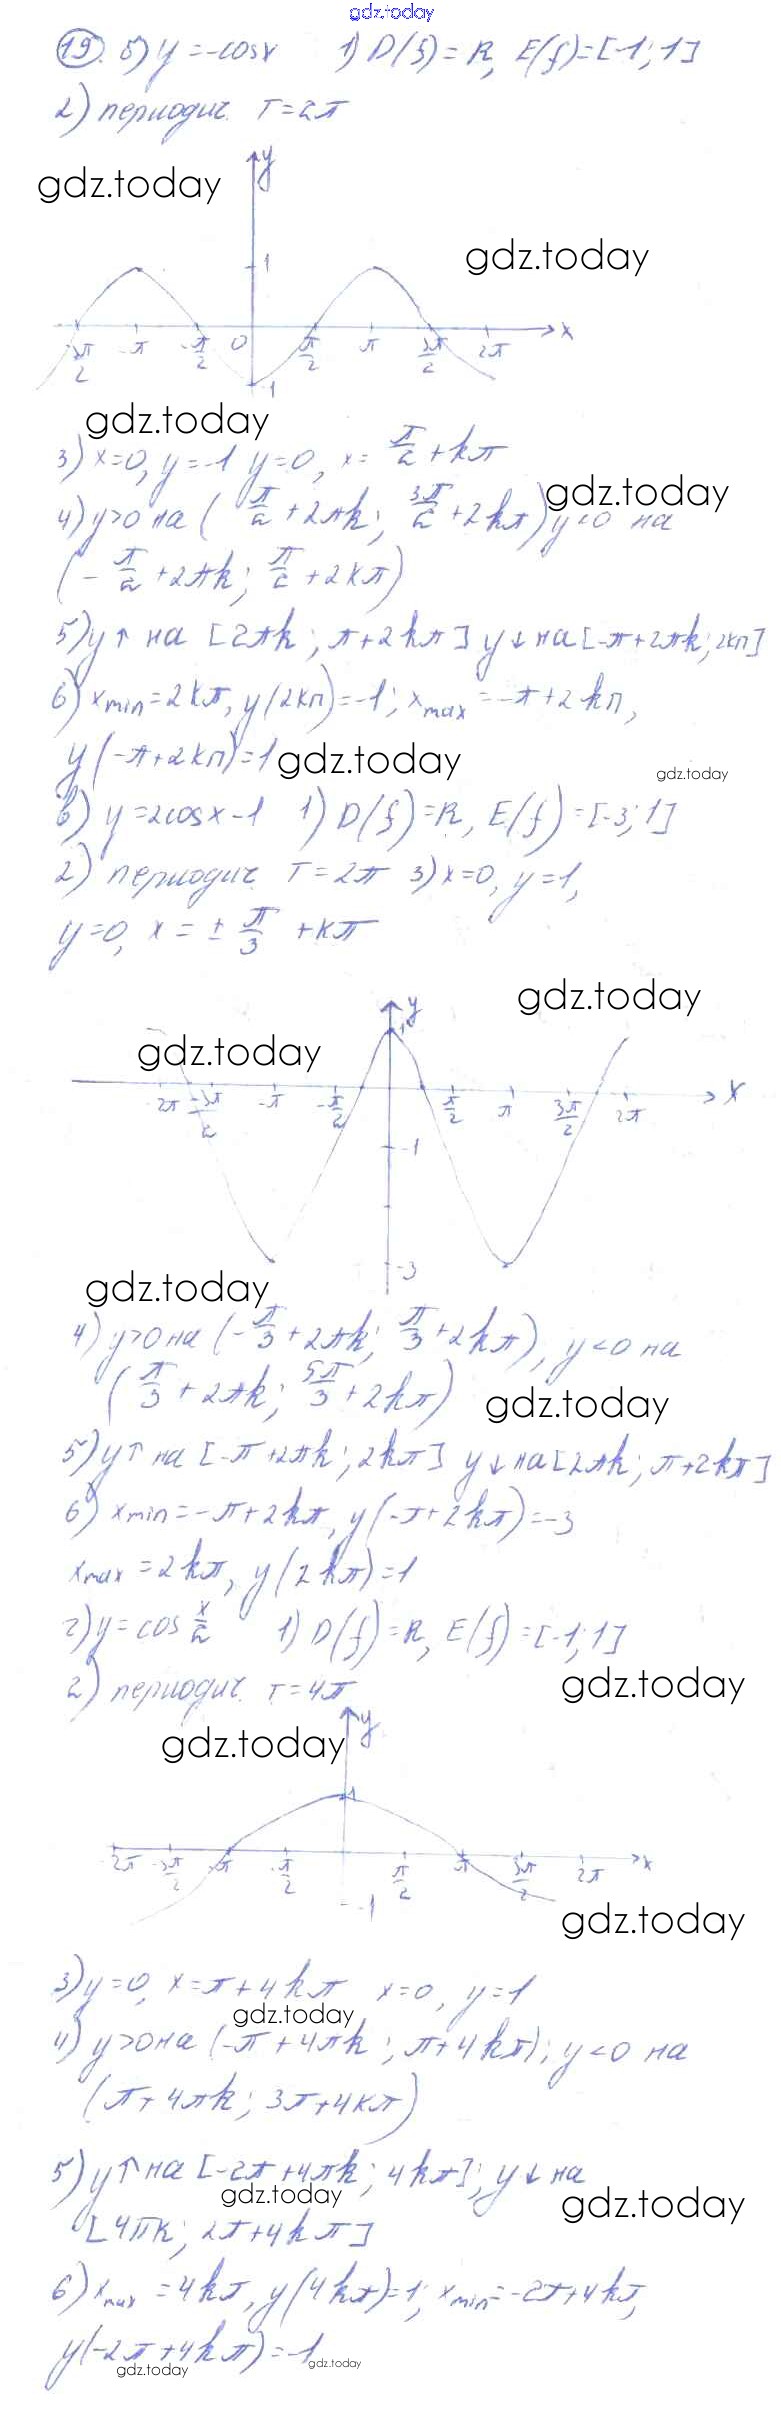 gdz.today
19. б) y = -cosx 1) D(f) = R, E(f) = [-1; 1]
2) периодич. T = 2π
y
gdz.today
gdz.today
1
x
-3π/2 -π -π/2 0 π/2 π 3π/2 2π
-1
gdz.today
3) x=0, y=-1 y=0, x= π/2 + kπ
gdz.today
4) y>0 на (π/2 + 2πk; 3π/2 + 2kπ) y<0 на
(-π/2 + 2πk; π/2 + 2kπ)
5) y↑ на [2πk; π+2kπ] y↓ на [-π+2πk; 2kπ]
6) xmin = 2kπ, y(2kπ) = -1; xmax = -π+2kπ,
y(-π+2kπ)=1
gdz.today
gdz.today
в) y=2cosx-1 1) D(f)=R, E(f)=[-3; 1]
2) периодич. T=2π 3) x=0, y=1,
y=0, x = ± π/3 + kπ
gdz.today
y
gdz.today
1
x
-2π -3π/2 -π -π/2 π/2 π 3π/2 2π
-1
-3
gdz.today
4) y>0 на (-π/3 + 2πk; π/3 + 2kπ), y<0 на
(π/3 + 2πk; 5π/3 + 2kπ)
gdz.today
5) y↑ на [-π+2πk; 2kπ] y↓ на [2πk; π+2kπ]
6) xmin = -π+2kπ, y(-π+2kπ)=-3
xmax = 2kπ, y(2kπ)=1
г) y = cos x/2 1) D(f)=R, E(f)=[-1; 1]
2) периодич. T=4π
gdz.today
y
gdz.today
1
-2π -3π/2 -π -π/2 π/2 π 3π/2 2π x
-1
gdz.today
3) y=0, x=π+4kπ x=0, y=1
gdz.today
4) y>0 на (-π+4πk; π+4kπ); y<0 на
(π+4πk; 3π+4kπ)
5) y↑ на [-2π+4πk; 4kπ]; y↓ на
gdz.today
gdz.today
[4πk; 2π+4kπ]
6) xmax = 4kπ, y(4kπ)=1; xmin=-2π+4kπ,
y(-2π+4kπ)=-1
gdz.today
gdz.today